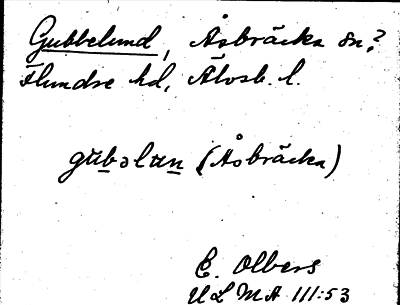 Gubbelund, Åsbräcka sn?
Flundre hd, Älvsb. l.
gŭbəlun (Åsbräcka)
E. Olbers
ULMA 111:53